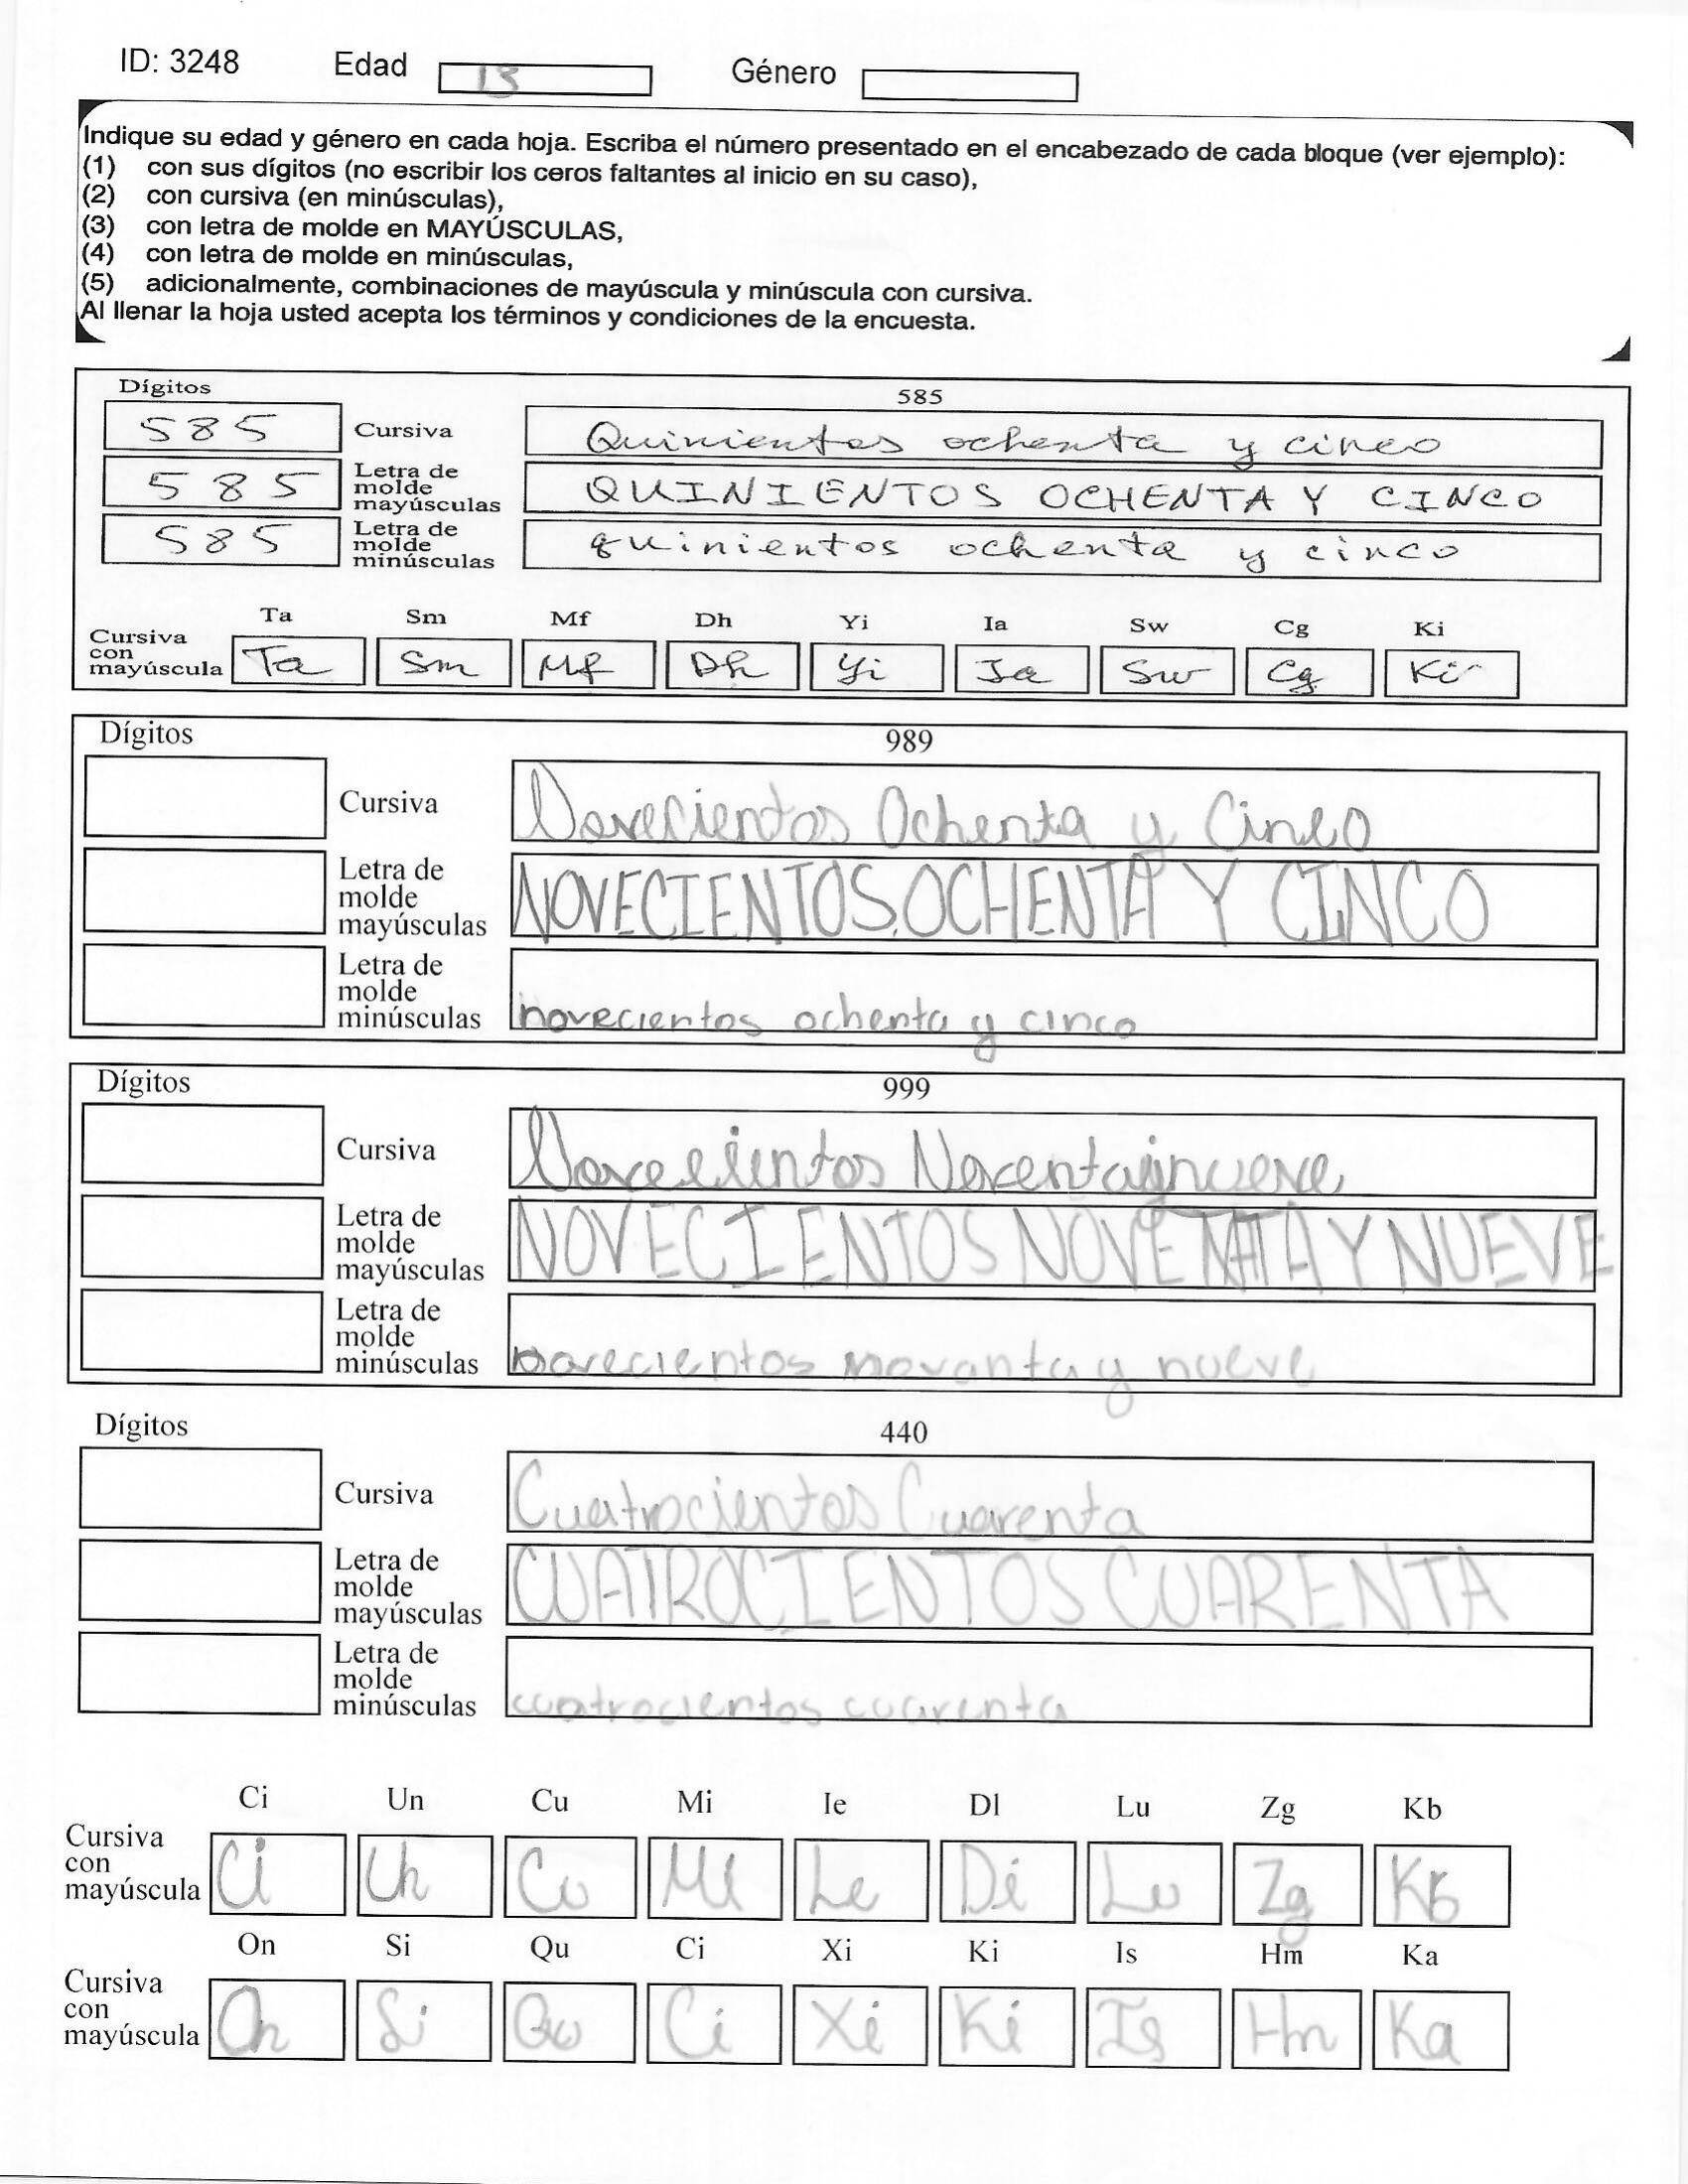 ID: 3248 Edad 13 Género
Indique su edad y género en cada hoja. Escriba el número presentado en el encabezado de cada bloque (ver ejemplo):
(1) con sus dígitos (no escribir los ceros faltantes al inicio en su caso),
(2) con cursiva (en minúsculas),
(3) con letra de molde en MAYÚSCULAS,
(4) con letra de molde en minúsculas,
(5) adicionalmente, combinaciones de mayúscula y minúscula con cursiva.
Al llenar la hoja usted acepta los términos y condiciones de la encuesta.
Dígitos 585
585 Cursiva Quinientos ochenta y cinco
585 Letra de molde mayúsculas QUINIENTOS OCHENTA Y CINCO
585 Letra de molde minúsculas quinientos ochenta y cinco
Ta Sm Mf Dh Yi Ia Sw Cg Ki
Cursiva con mayúscula Ta Sm Mf Dh Yi Ia Sw Cg Ki
Dígitos 989
Cursiva Novecientos Ochenta y Cinco
Letra de molde mayúsculas NOVECIENTOS OCHENTA Y CINCO
Letra de molde minúsculas novecientos ochenta y cinco
Dígitos 999
Cursiva Novecientos Noventa y nueve
Letra de molde mayúsculas NOVECIENTOS NOVENTA Y NUEVE
Letra de molde minúsculas novecientos novanta y nueve
Dígitos 440
Cursiva Cuatrocientos Cuarenta
Letra de molde mayúsculas CUATROCIENTOS CUARENTA
Letra de molde minúsculas cuatrocientos cuarenta
Ci Un Cu Mi Ie Dl Lu Zg Kb
Cursiva con mayúscula Ci Un Cu Mi Le Di Lu Zg Kb
On Si Qu Ci Xi Ki Is Hm Ka
Cursiva con mayúscula On Si Qu Ci Xi Ki Is Hm Ka